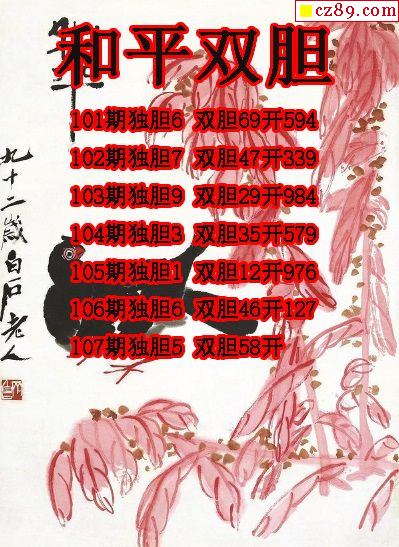 cz89.com
和平双胆
101期独胆6 双胆69开594
102期独胆7 双胆47开339
103期独胆9 双胆29开984
104期独胆3 双胆35开579
105期独胆1 双胆12开976
106期独胆6 双胆46开127
107期独胆5 双胆58开
九十二岁白石老人